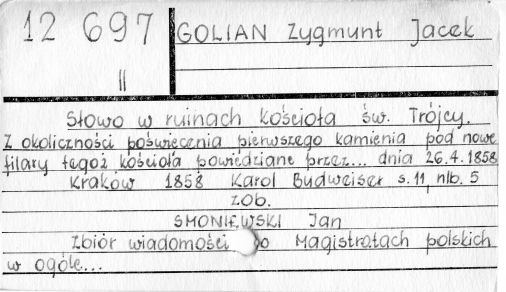 12 697
II
GOLIAN Zygmunt Jacek
Słowo w ruinach kościoła św. Trójcy.
Z okoliczności poświęcenia pierwszego kamienia pod nowe
filary tegoż kościoła powiedziane przez... dnia 26.4.1858
Kraków 1858 Karol Budweiser s. 11, nlb. 5
zob.
SMONIEWSKI Jan
Zbiór wiadomości o Magistratach polskich
w ogóle...